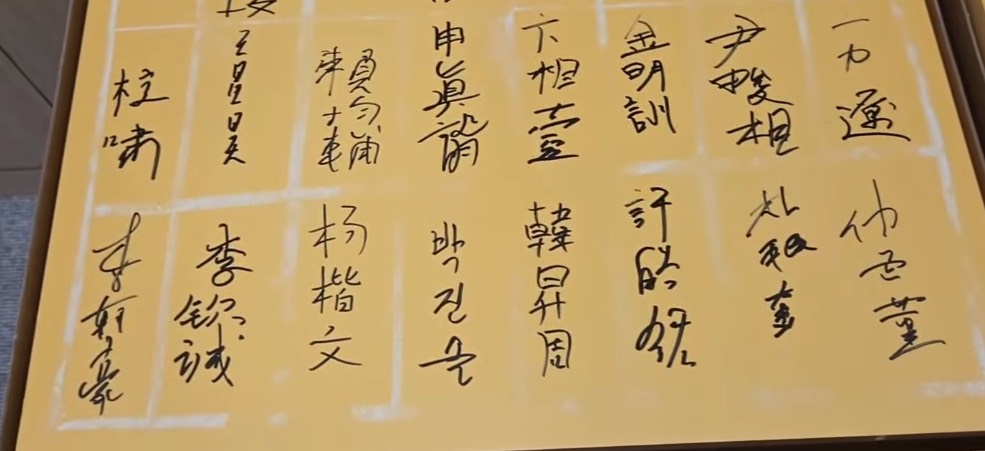 一力遼
尹畯相
金明訓
卞相壹
申眞諝
賴均輔
王星昊
嘯
仲邑菫
許皓鋐
韓昇周
박진솔
杨楷文
李钦诚
李轩豪